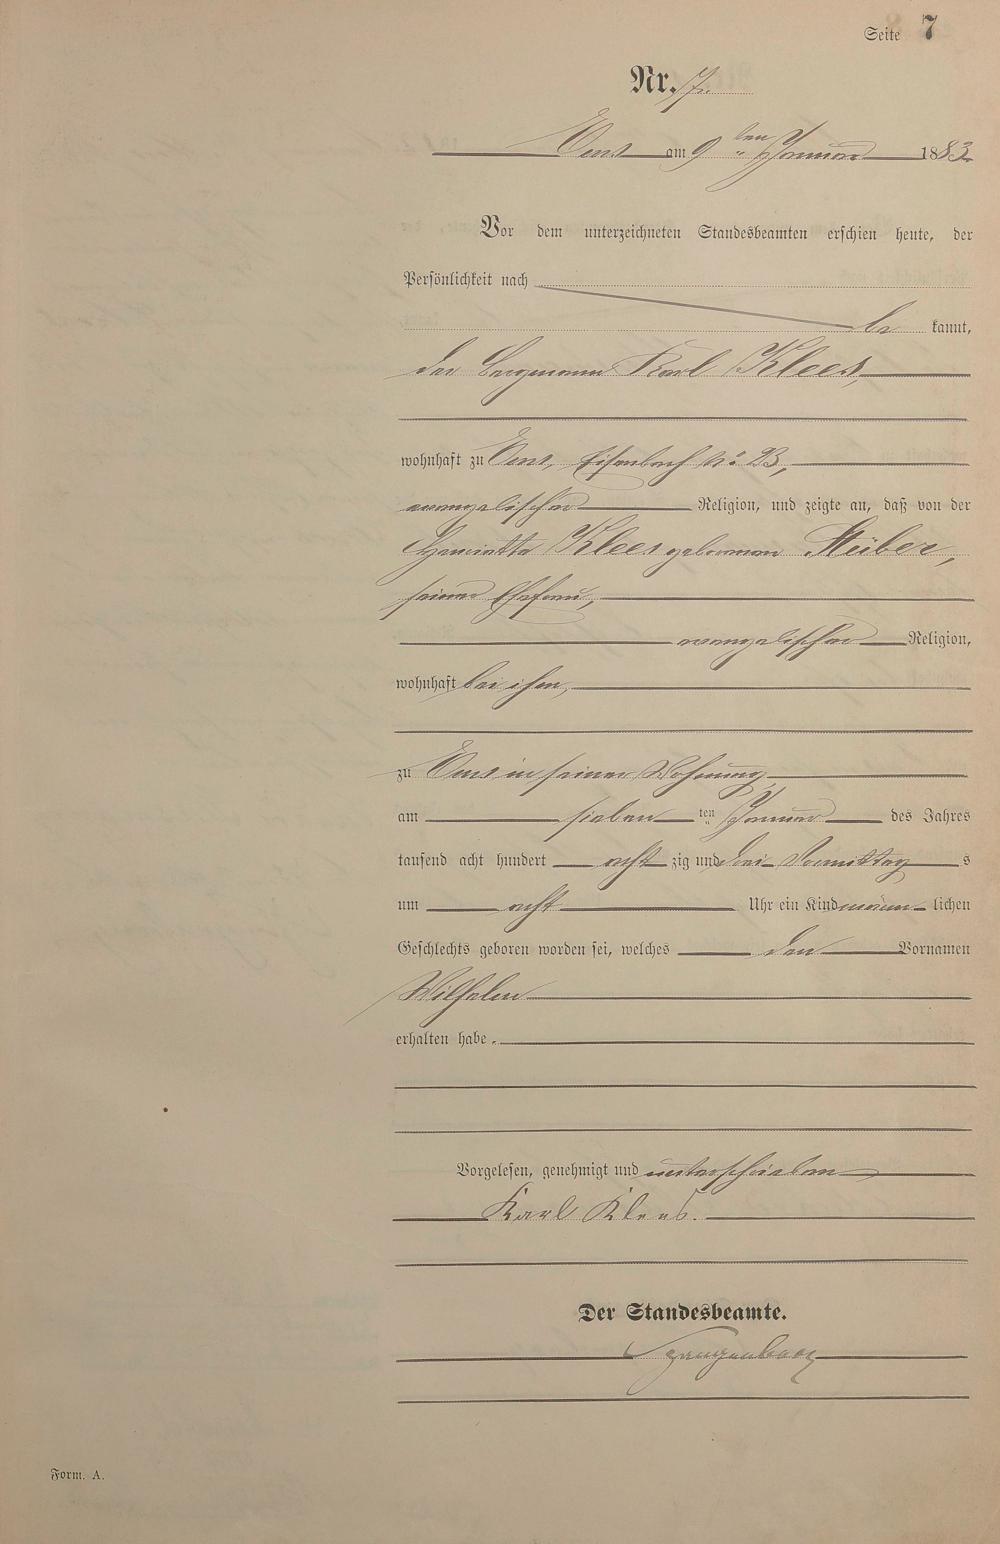 Seite 7
Nr. 7.
Ems am 9 ten Januar 1883
Vor dem unterzeichneten Standesbeamten erschien heute, der
Persönlichkeit nach
be kannt,
der Bergmann Karl Klees,
wohnhaft zu Ems, Eisenbach No 23,
evangelischer Religion, und zeigte an, daß von der
Henriette Klees geborenen Stüber,
seiner Ehefrau,
evangelischer Religion,
wohnhaft bei ihm,
zu Ems in seiner Wohnung,
am sieben ten Januar des Jahres
tausend acht hundert acht zig und drei Vormittag s
um acht Uhr ein Kind männ lichen
Geschlechts geboren worden sei, welches den Vornamen
Wilhelm
erhalten habe.
Vorgelesen, genehmigt und unterschrieben
Karl Klees.
Der Standesbeamte.
Form. A.